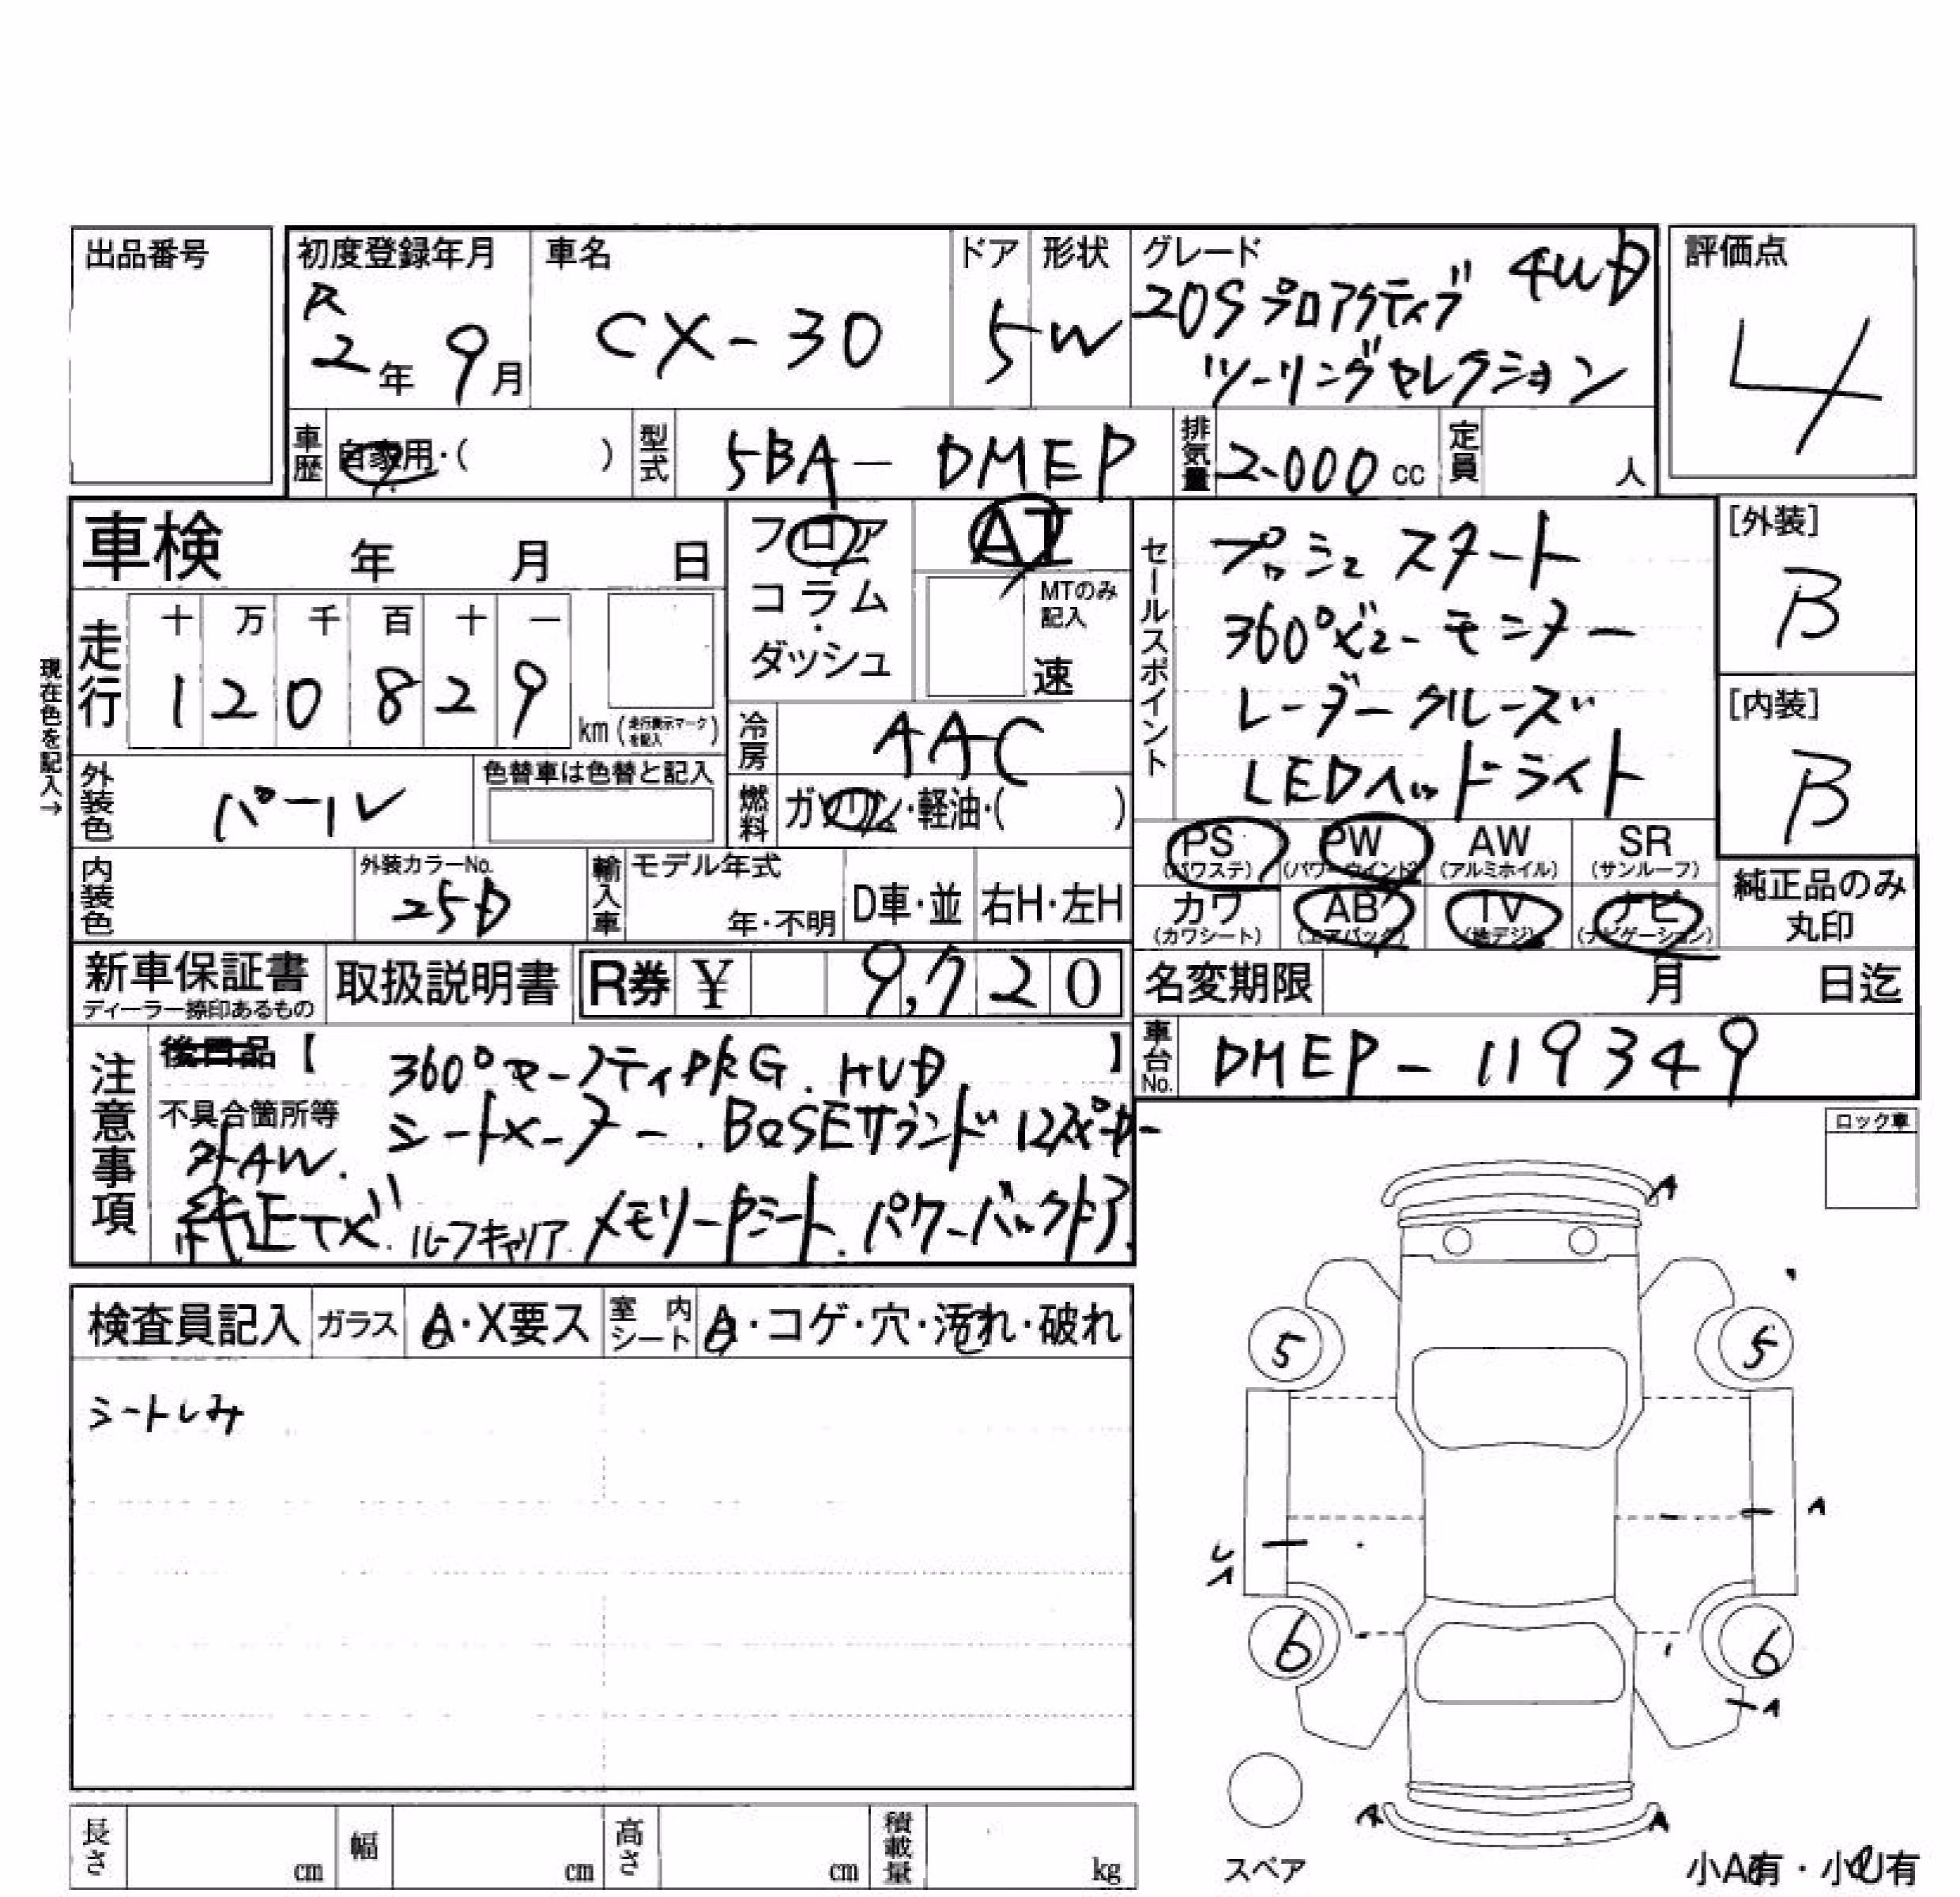 出品番号
初度登録年月 車名 ドア 形状 グレード 評価点
R 2年 9月 CX-30 5 W 20S プロアクティブ 4WD
ツーリングセレクション
4
車歴 自家用・( ) 型式 5BA-DMEP 排気量 2.000cc 定員 人
車検 年 月 日
フロア・コラム・ダッシュ
AT
MTのみ記入
速
セールスポイント
プッシュスタート
360°ビューモニター
レーダークルーズ
LEDヘッドライト
[外装]
B
[内装]
B
現在色を記入→
走行 十 万 千 百 十 一
1 2 0 8 2 9 km (走行表示マークを記入)
冷房 AAC
外装色 パール 色替車は色替と記入
燃料 ガソリン・軽油・( )
PS (パワステ) PW (パワーウインド) AW (アルミホイル) SR (サンルーフ)
カワ (カワシート) AB (エアバック) TV (地デジ) ナビ (ナビゲーション)
純正品のみ
丸印
内装色 外装カラーNo. 25D 輸入車 モデル年式 年・不明 D車・並 右H・左H
新車保証書 ディーラー捺印あるもの 取扱説明書 R券 ¥ 9,720
名変期限 月 日迄
車台No. DMEP-119349
注意事項
後日品【 360°セーフティPKG. HUD 】
不具合箇所等 シートメーター. BOSEサウンド 12スピーカー
外AW.
純正TV. ルーフキャリア. メモリーPシート. パワーバックドア.
ロック車
検査員記入 ガラス A・X要ス 室内シート A・コゲ・穴・汚れ・破れ
シートしみ
A
5 5
A
A
6 6
A
A A
スペア
小A有・小U有
長さ cm 幅 cm 高さ cm 積載量 kg